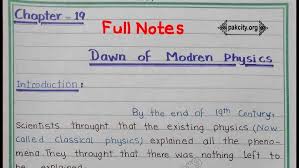 Chapter - 19
Full Notes
pakcity.org
Dawn of Modren Physics
Introduction:
By the end of 19th Century,
Scientists throught that the existing physics (Now
called classical physics) explained all the pheno-
mena. They throught that there was nothing left to
be explained.